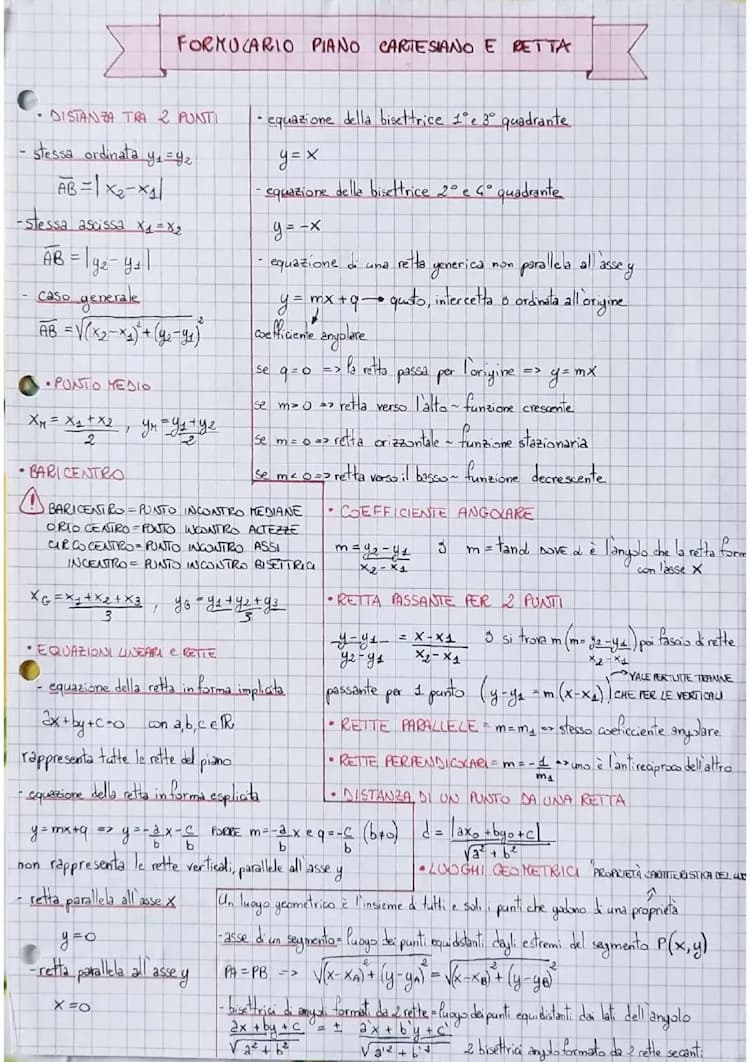 FORMULARIO PIANO CARTESIANO E RETTA
• DISTANZA TRA 2 PUNTI
- stessa ordinata y₁=y₂
AB=|x₂-x₁|
-stessa ascissa x₁=x₂
AB=|y₂-y₁|
- caso generale
AB=√(x₂-x₁)²+(y₂-y₁)²
• PUNTO MEDIO
X_M = x₁+x₂/2 , y_M = y₁+y₂/2
• BARICENTRO
! BARICENTRO = PUNTO INCONTRO MEDIANE
ORTO CENTRO = PUNTO INCONTRO ALTEZZE
CIRCOCENTRO = PUNTO INCONTRO ASSI
INCENTRO = PUNTO INCONTRO BISETTRICI
X_G = x₁+x₂+x₃/3 , y_G = y₁+y₂+y₃/3
• EQUAZIONI LINEARI e RETTE
- equazione della retta in forma implicita
ax+by+c=0 con a,b,c∈R
rappresenta tutte le rette del piano
- equazione della retta in forma esplicita
y=mx+q => y=-a/b x-c/b FORRE m=-a/b x e q=-c/b (b≠0)
non rappresenta le rette verticali, parallele all'asse y
- retta parallela all'asse x
y=0
- retta parallela all'asse y
x=0
• equazione della bisettrice 1° e 3° quadrante
y=x
- equazione della bisettrice 2° e 4° quadrante
y=-x
- equazione di una retta generica non parallela all'asse y
y=mx+q → quoto, intercetta o ordinata all'origine
coefficiente angolare
se q=0 => la retta passa per l'origine => y=mx
se m>0 => retta verso l'alto ~ funzione crescente
se m=0 => retta orizzontale ~ funzione stazionaria
se m<0 => retta verso il basso ~ funzione decrescente
• COEFFICIENTE ANGOLARE
m=y₂-y₁/x₂-x₁ m=tanα DOVE α è l'angolo che la retta form
con l'asse X
• RETTA PASSANTE PER 2 PUNTI
y-y₁/y₂-y₁ = x-x₁/x₂-x₁ si trova m (m=y₂-y₁/x₂-x₁) poi fascio di rette
passante per 1 punto (y-y₁=m(x-x₁)) → VALE PER TUTTE TRANNE
CHE PER LE VERTICALI
• RETTE PARALLELE = m=m₁ => stesso coefficiente angolare
• RETTE PERPENDICOLARI = m=-1/m₁ => uno è l'antireciproco dell'altro
• DISTANZA DI UN PUNTO DA UNA RETTA
d=|ax₀+by₀+c|/√a²+b²
• LUOGHI GEOMETRICI "PROPRIETÀ CARATTERISTICA DEL
Un luogo geometrico è l'insieme di tutti e soli i punti che godono di una proprietà
- asse di un segmento = luogo dei punti equidistanti dagli estremi del segmento P(x,y)
PA=PB => √(x-x_A)²+(y-y_A)² = √(x-x_B)²+(y-y_B)²
- bisettrici di angoli formati da 2 rette = luogo dei punti equidistanti dai lati dell'angolo
ax+by+c/√a²+b² = ± a'x+b'y+c'/√a'²+b'² 2 bisettrici angolo formato da 2 rette secanti